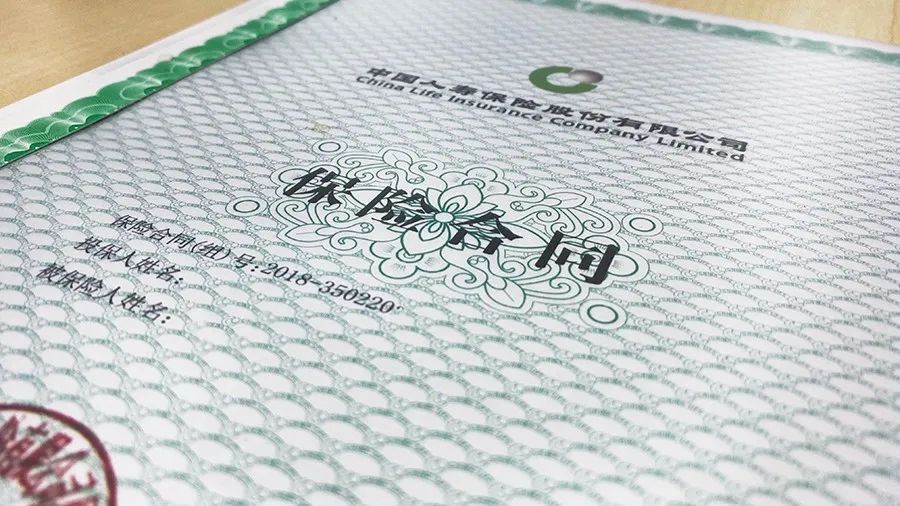 中国人寿保险股份有限公司
China Life Insurance Company Limited
保险合同
保险合同(组)号:2018-350220
投保人姓名:
被保险人姓名: